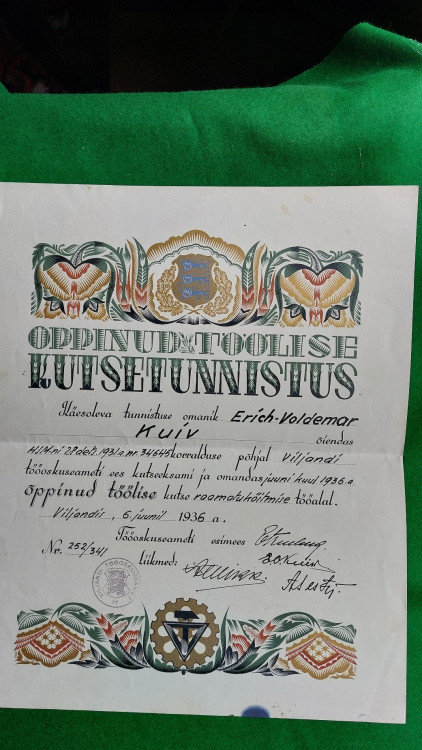 ÕPPINUD TÖÖLISE
KUTSETUNNISTUS
Käesoleva tunnistuse omanik Erich-Voldemar
Kuiv õiendas
28 dets. 1931 a. nr. 34645 korralduse põhjal Viljandi
tööoskuseameti ees kutseeksami ja omandas juuni kuul 1936 a.
õppinud töölise kutse raamatuköitmise tööalal.
Viljandis, 6 juunil 1936 a.
Tööoskuseameti esimees
Nr. 252/341
liikmed: